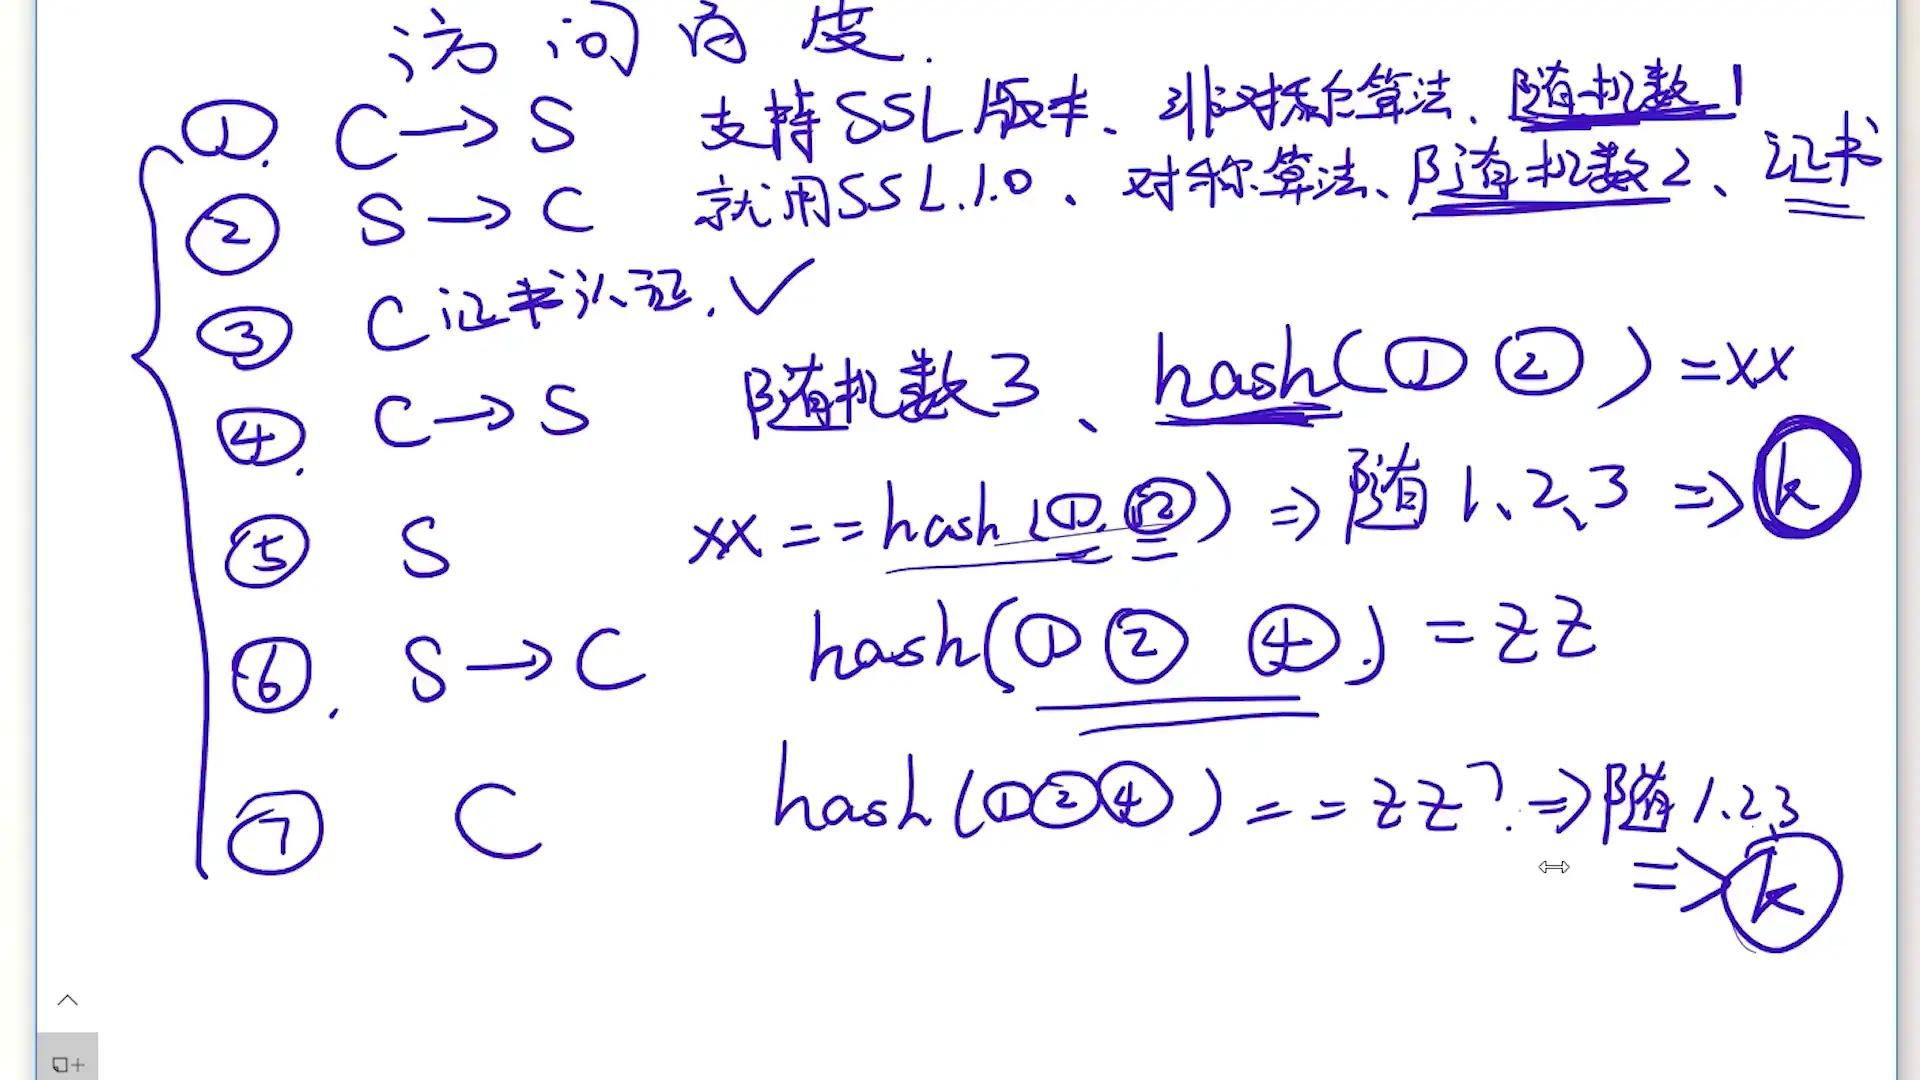 访问百度.
①. C → S 支持SSL版本、非对称算法、随机数1
② S → C 就用SSL.1.0、对称算法、随机数2、证书
③ C 证书认证. ✓
④. C → S 随机数3、hash(① ②) = xx
⑤ S xx == hash(①.②) => 随1、2、3 => k
⑥. S → C hash(① ② ④.) = zz
⑦ C hash(①②④) == zz? => 随1、2、3
=> k